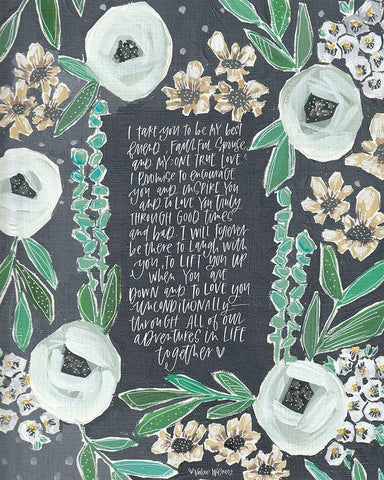 I TAKE YOU TO BE MY BEST
FRIEND, FAITHFUL SPOUSE
AND MY ONE TRUE LOVE.
I PROMISE TO ENCOURAGE
YOU AND INSPIRE YOU
AND TO LOVE YOU TRULY
THROUGH GOOD TIMES
AND BAD. I WILL FOREVER
BE THERE TO LAUGH WITH
YOU, TO LIFT YOU UP
WHEN YOU ARE
DOWN AND TO LOVE YOU
UNCONDITIONALLY
THROUGH ALL OF OUR
ADVENTURES IN LIFE
TOGETHER